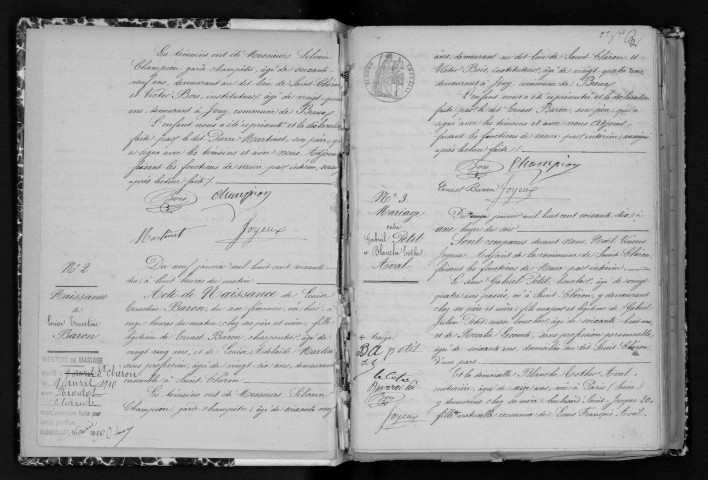 Les témoins ont été Messieurs Silvain
Champion garde champêtre, âgé de soixante
neuf ans, demeurant au dit lieu de Saint Chéron
et Victor Bois, instituteur, âgé de vingt quatre
ans, demeurant à Jouy, commune de Breux
L'enfant nous a été représenté et la déclaration
faite par le dit Pierre Martinet, son père, qui
a signé avec les témoins et avec nous Adjoint
faisant les fonctions de maire par intérim,
après lecture faite
Bois Champion
Martinet Joyeux
N° 2
Naissance
de
Louise Ernestine
Baron
Du neuf janvier mil huit cent soixante
dix à huit heures du matin
Acte de Naissance de Louise
Ernestine Baron, du sexe féminin, née hier, à
heures du matin chez ses père et mère, fille
légitime de Ernest Baron, charpentier, âgé de
vingt cinq ans, et de Louise Adélaïde Martin
sans profession, âgée de vingt deux ans, demeurant
ensemble à Saint Chéron
Les témoins ont été Messieurs Silvain
Champion, garde champêtre, âgé de soixante neuf
MENTION DE MARIAGE
St Chéron
avril 1910
1910
ans, demeurant au dit lieu de Saint Chéron, et
Victor Bois, instituteur, âgé de vingt quatre ans,
demeurant à Jouy, commune de Breux
L'enfant nous a été représenté et la déclaration
faite par le dit Ernest Baron, son père, qui a
signé avec les témoins et avec nous Adjoint
faisant les fonctions de maire par intérim,
après lecture faite
Bois Champion
Ernest Baron Joyeux
N° 3
Mariage
entre
Gabriel Petit
et Blanche Esther
Noval
janvier mil huit cent soixante dix, à
heures du soir
Sont comparus devant Nous, Noël Vincent
Joyeux, Adjoint de la commune de Saint Chéron
faisant les fonctions de Maire par intérim
Le sieur Gabriel Petit, âgé de vingt
quatre ans passés, né à Saint Chéron, y demeurant
chez ses père et mère, fils majeur et légitime de Gabriel
Julien Petit, âgé de soixante huit ans
et de Lecomte, sans profession,
âgée de soixante ans, domiciliés au dit Saint Chéron
d'une part
Et la demoiselle Blanche Esther Noval
couturière, âgée de seize ans, née à Paris (Seine)
y demeurant chez sa mère, boulevard Saint Jacques 20,
fille naturelle reconnue de Louis François Noval
Joyeux